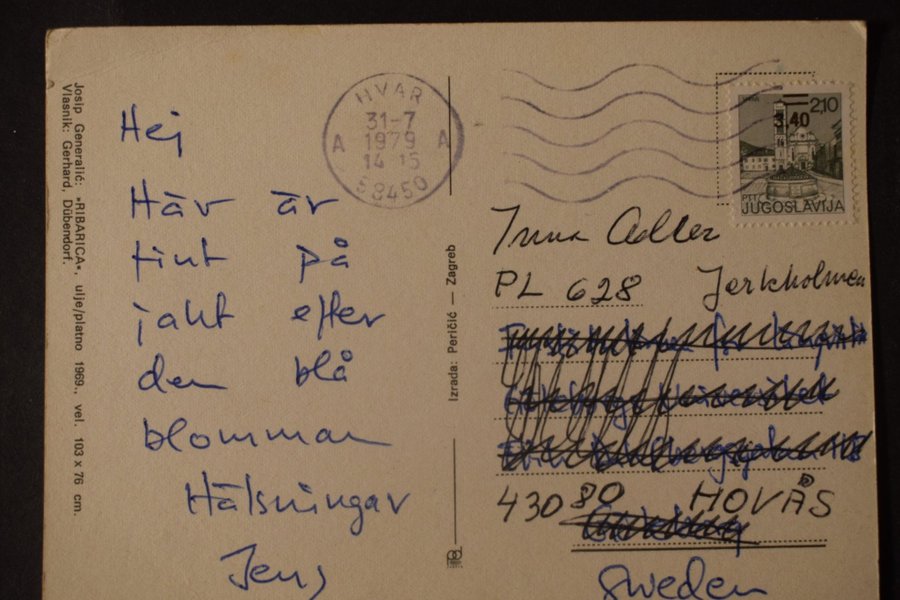 Josip Generalić: »RIBARICA«, ulje/platno 1969., vel. 103 x 76 cm.
Vlasnik: Gerhard, Dübendorf.
Hej
Här är
fint på
jakt efter
den blå
blomman
Hälsningar
Jens
HVAR
31-7
A 1979 A
14 15
58450
Izrada: Peričić — Zagreb
2,10
3,40
JUGOSLAVIJA
Adler
PL 628 Jerkholmen
430 80 HOVÅS
Sweden